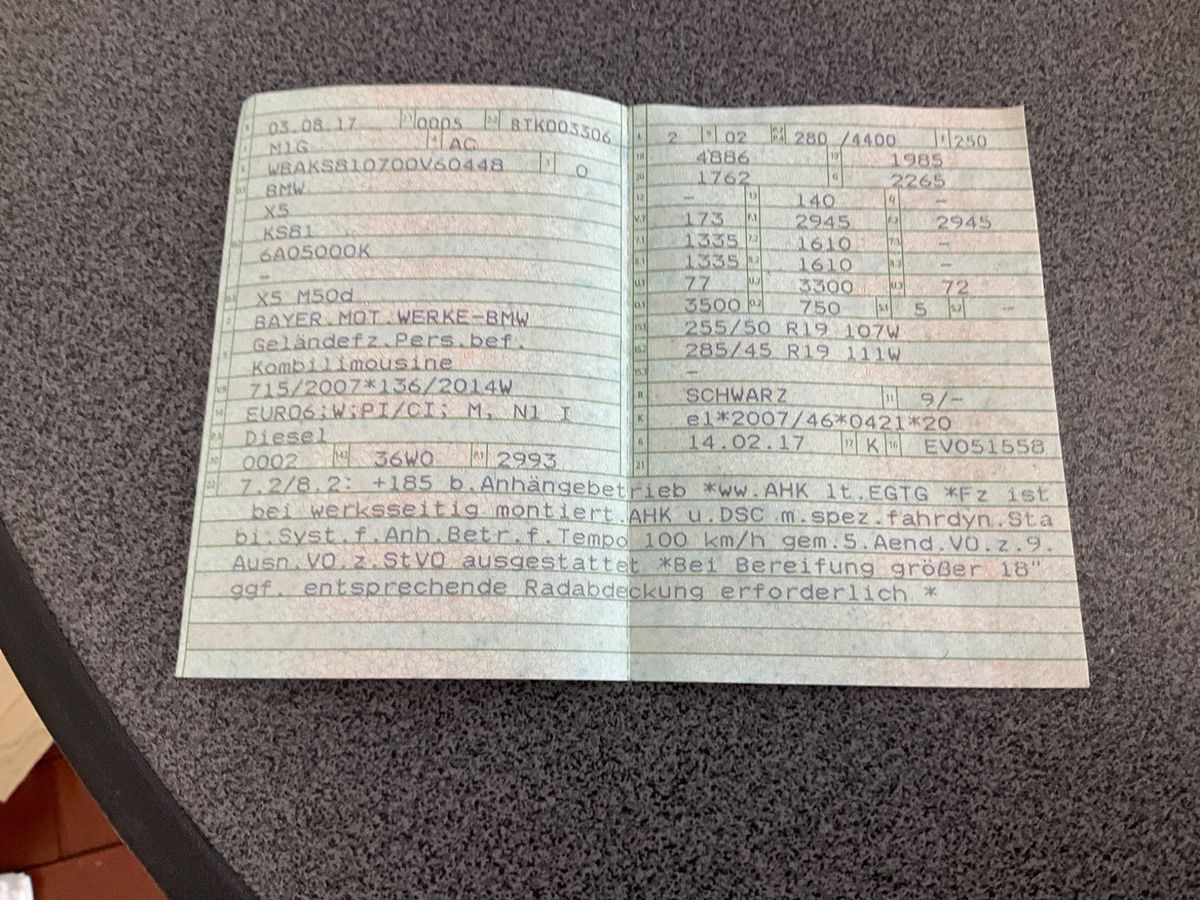 03.08.17 0005 BTK003306
M1G AC
WBAKS810700V60448 0
BMW
X5
KS81
6A05000K
–
X5 M50d
BAYER.MOT.WERKE-BMW
Geländefz.Pers.bef.
Kombilimousine
715/2007*136/2014W
EURO6;W;PI/CI; M, N1 I
Diesel
0002 36W0 P.1 2993
L 2 9 02 P.2 P.4 280 /4400 T 250
18 4886 19 1985
20 1762 G 2265
12 – 13 140 Q –
V.7 173 F.1 2945 F.2 2945
7.1 1335 7.2 1610 7.3 –
8.1 1335 8.2 1610 8.3 –
U.1 77 U.2 3300 U.3 72
O.1 3500 O.2 750 S.1 5 S.2 –
15.1 255/50 R19 107W
15.2 285/45 R19 111W
15.3 –
R SCHWARZ 11 9/–
K e1*2007/46*0421*20
6 14.02.17 17 K 16 EV051558
21
22 7.2/8.2: +185 b.Anhängebetrieb *ww.AHK lt.EGTG *Fz ist
bei werksseitig montiert.AHK u.DSC m.spez.fahrdyn.Sta
bi.Syst.f.Anh.Betr.f.Tempo 100 km/h gem.5.Aend.VO.z.9.
Ausn.VO.z.StVO ausgestattet *Bei Bereifung größer 18"
ggf. entsprechende Radabdeckung erforderlich *